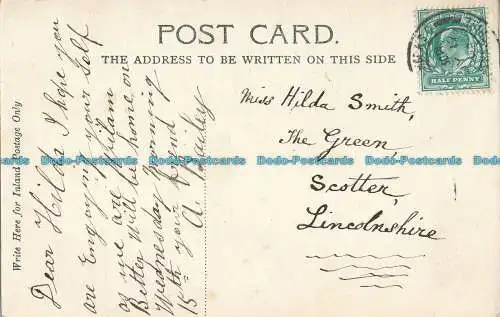 POST CARD.
THE ADDRESS TO BE WRITTEN ON THIS SIDE
HALF PENNY
Write Here for Inland Postage Only
Dear Hilda I hope you
are Engoying your Self
as we are
Better Will be home on
Wednesday Morning
15th your friend
A. Bailey
Miss Hilda Smith,
The Green,
Scotter,
Lincolnshire
Dodo-Postcards Dodo-Postcards Dodo-Postcards Dodo-Postcards Dodo-Postcards Dodo-Postcards